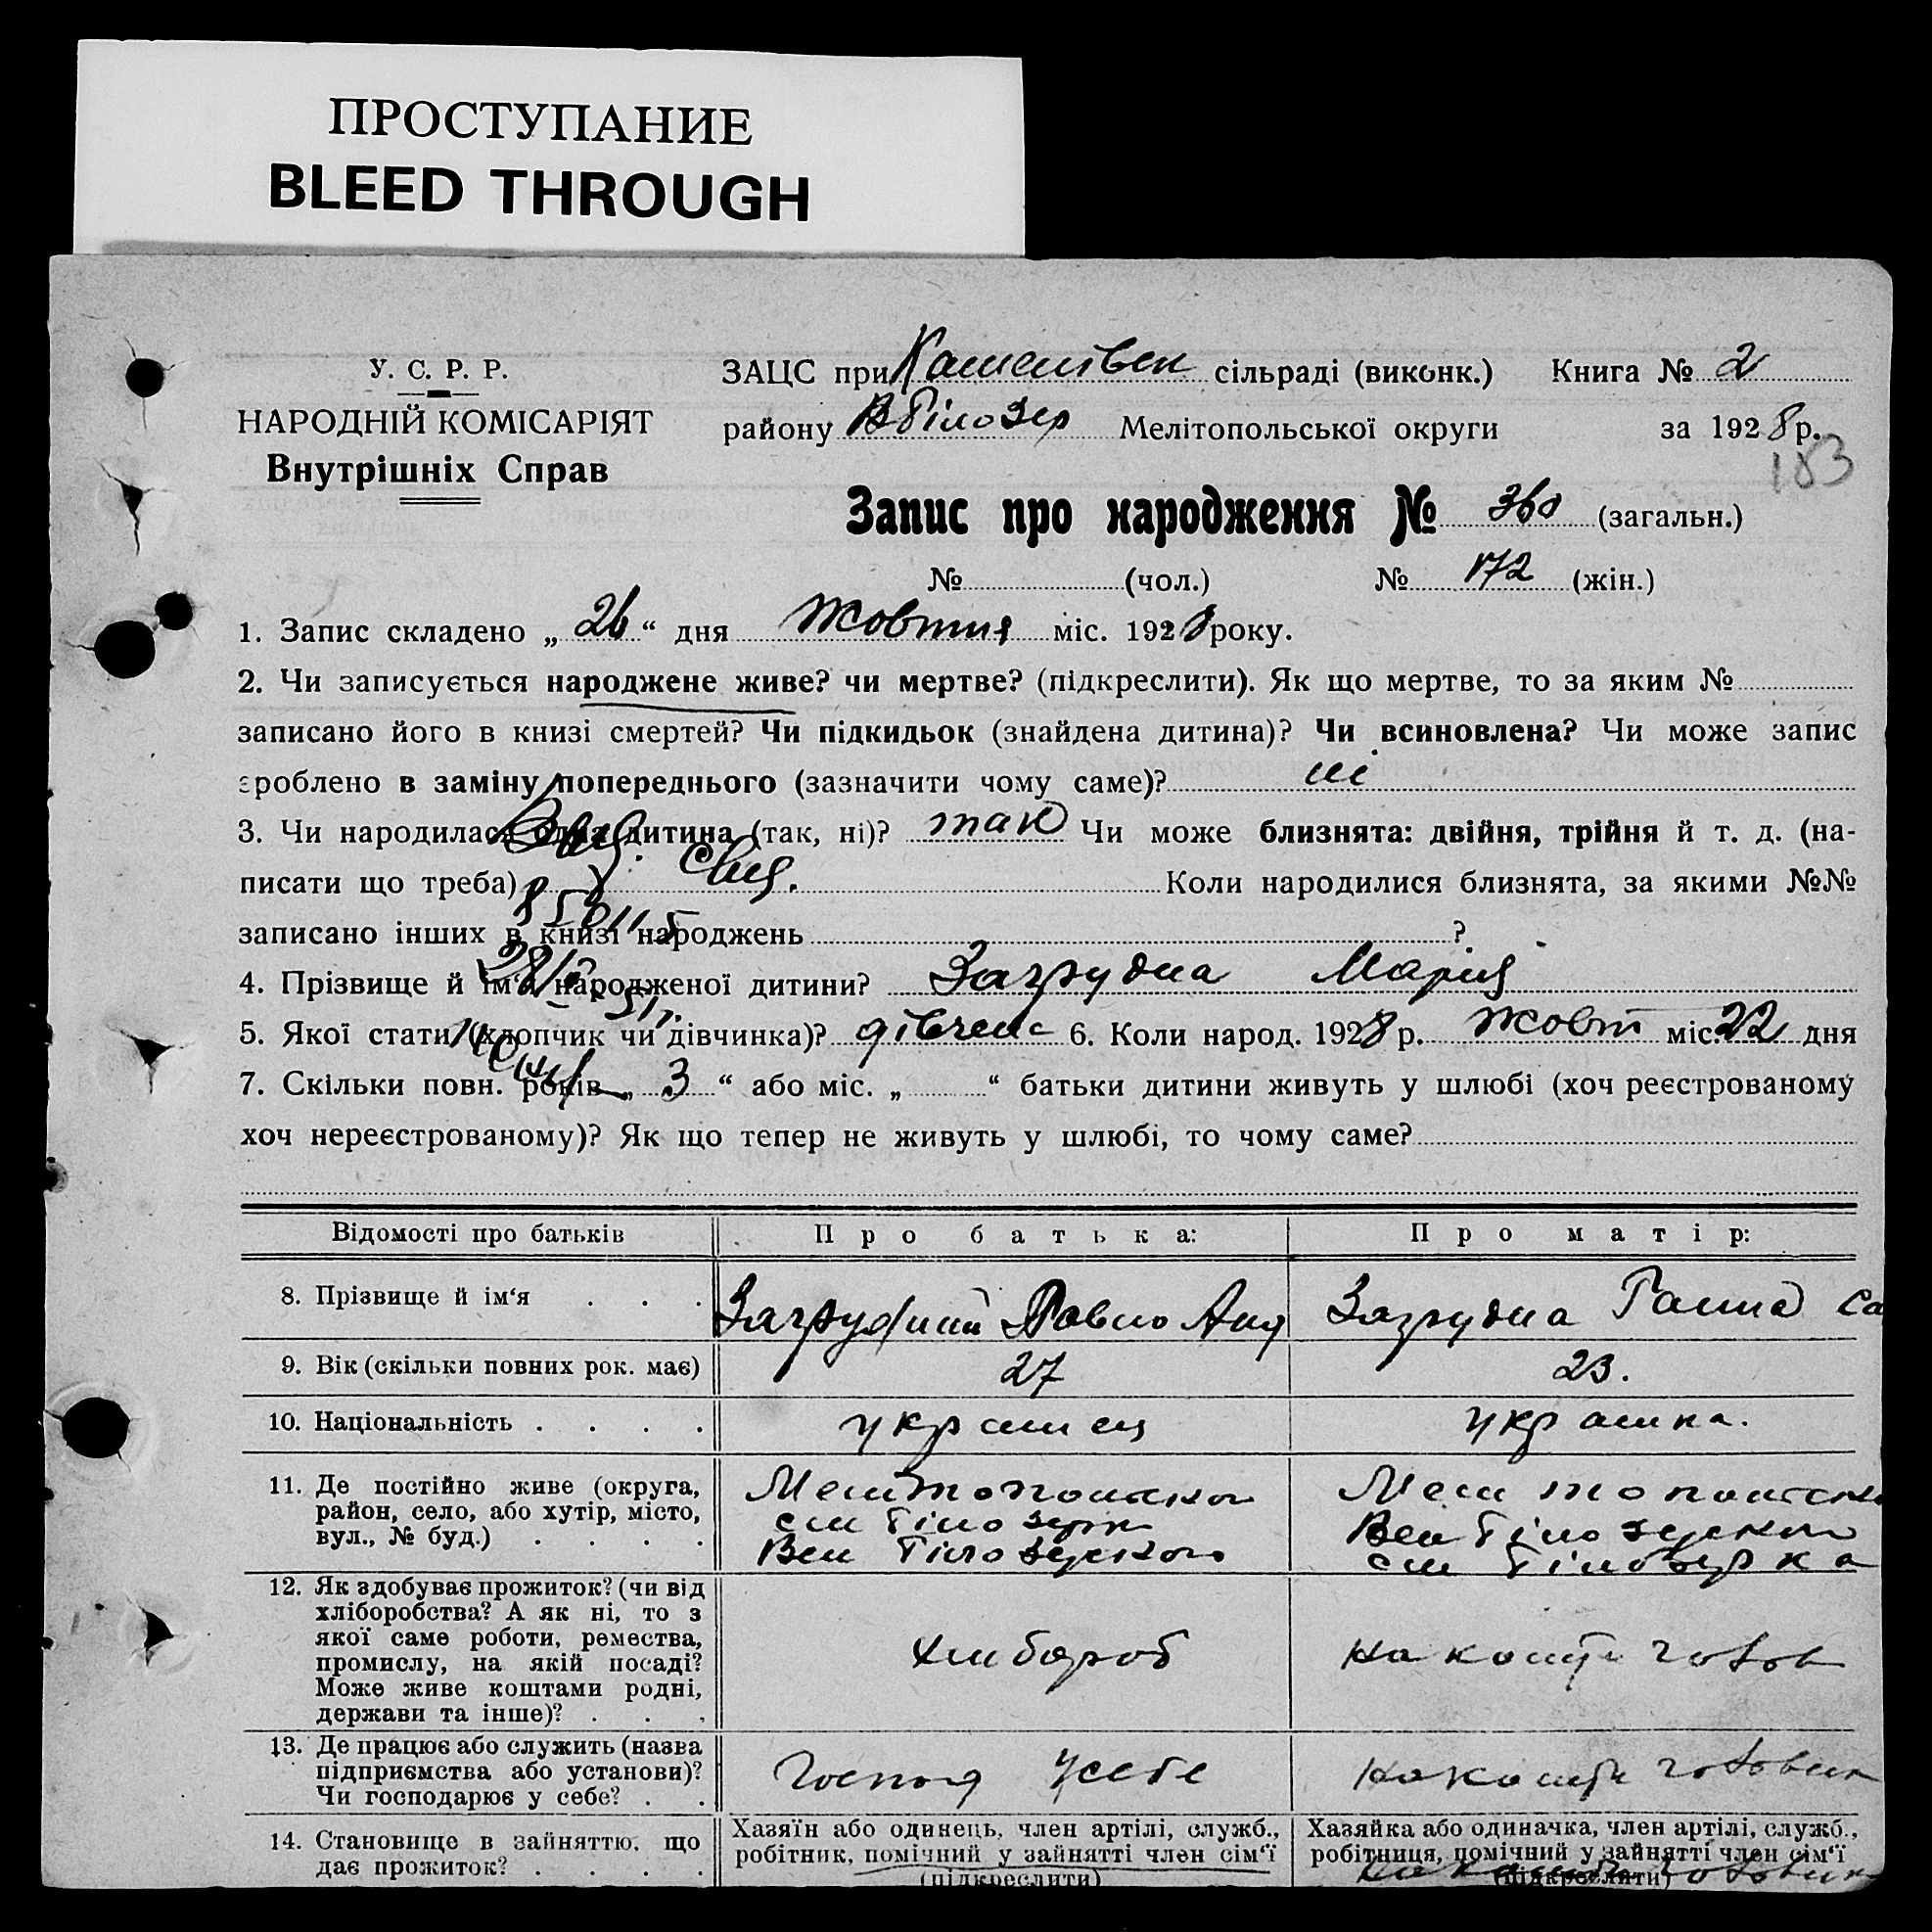 ПРОСТУПАНИЕ
BLEED THROUGH
У. С. Р. Р.
НАРОДНІЙ КОМІСАРІЯТ
Внутрішніх Справ
ЗАЦС при сільраді (виконк.) Книга № 2
району В Білозер Мелітопольської округи за 1928 р.
183
Запис про народження № 360 (загальн.)
№ (чол.) № 172 (жін.)
1. Запис складено „ 26 “ дня Жовтня міс. 1928 року.
2. Чи записується народжене живе? чи мертве? (підкреслити). Як що мертве, то за яким №
записано його в книзі смертей? Чи підкидьок (знайдена дитина)? Чи всиновлена? Чи може запис
зроблено в заміну попереднього (зазначити чому саме)? ні
3. Чи народилась одна дитина (так, ні)? так Чи може близнята: двійня, трійня й т. д. (на-
писати що треба) Коли народилися близнята, за якими №№
записано інших в книзі народжень ?
4. Прізвище й ім‘я народженої дитини? Загрудна Марія
5. Якої стати (хлопчик чи дівчинка)? дівчина 6. Коли народ. 1928 р. Жовт міс. 22 дня
7. Скільки повн. років „ 3 “ або міс. „ “ батьки дитини живуть у шлюбі (хоч реєстрованому
хоч нереєстрованому)? Як що тепер не живуть у шлюбі, то чому саме?
Відомості про батьків Про батька: Про матір:
8. Прізвище й ім‘я . . . Загрудний Павло Анд Загрудна Ганна Са
9. Вік (скільки повних рок. має) 27 23.
10. Національність . . . . українец українка.
11. Де постійно живе (округа,
район, село, або хутір, місто,
вул., № буд.) . . . .
Мелітопольскої
см Білозірк
Вел Білозерского
Мелітопольско
Вел Білозерского
см Білозірка
12. Як здобуває прожиток? (чи від
хліборобства? А як ні, то з
якої саме роботи, ремества,
промислу, на якій посаді?
Може живе коштами родні,
держави та інше)? . . .
Хлібороб
На кошти чолов
13. Де працює або служить (назва
підприємства або установи)?
Чи господарює у себе? . .
Господ у себе
На кошти чоловік
14. Становище в зайняттю, що
дає прожиток? . . . .
Хазяїн або одинець, член артілі, служб.,
робітник, помічний у зайнятті член сім‘ї
(підкреслити)
Хазяйка або одиначка, член артілі, служб.,
робітниця, помічний у зайнятті член сім‘ї
(підкреслити)
На кошти чоловік